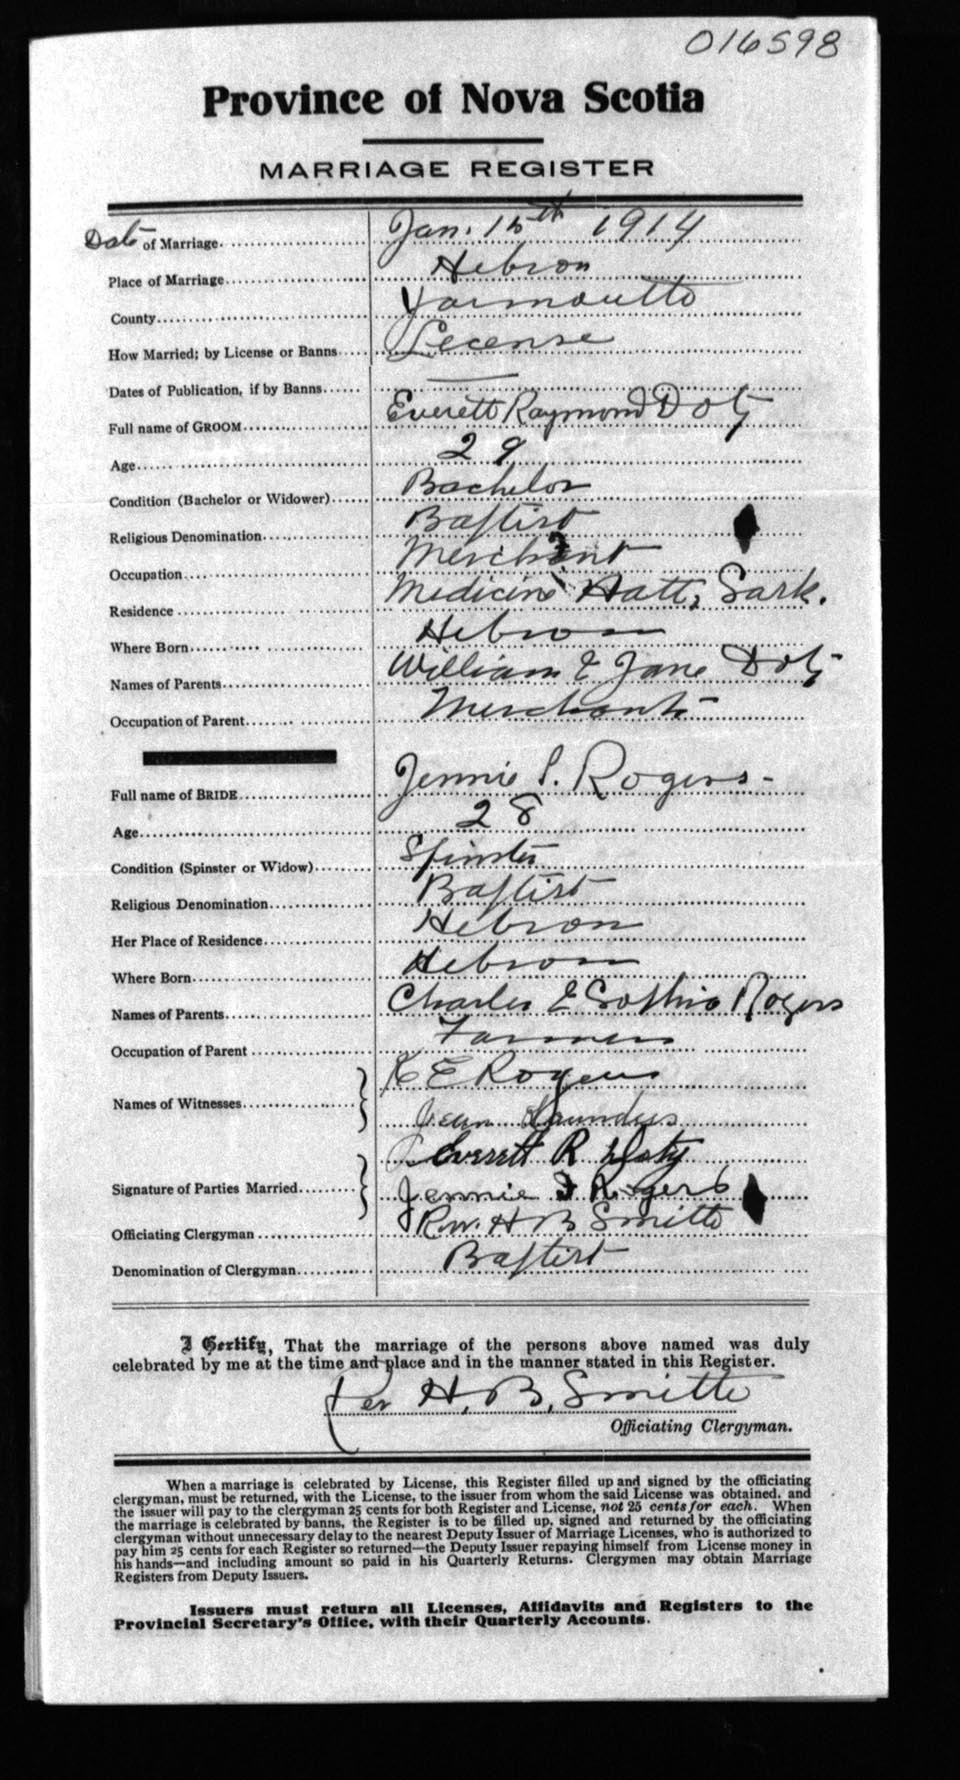 016598
Province of Nova Scotia
MARRIAGE REGISTER
Date of Marriage. Jan. 15th 1914
Place of Marriage Hebron
County Yarmouth
How Married; by License or Banns License
Dates of Publication, if by Banns —
Full name of GROOM Everett Raymond Doty
Age 29
Condition (Bachelor or Widower) Bachelor
Religious Denomination Baptist
Occupation Merchant
Residence Medicine Hatt, Sask.
Where Born Hebron
Names of Parents William & Jane Doty
Occupation of Parent Merchant
Full name of BRIDE Jennie S. Rogers
Age 28
Condition (Spinster or Widow) Spinster
Religious Denomination Baptist
Her Place of Residence Hebron
Where Born Hebron
Names of Parents Charles & Sophia Rogers
Occupation of Parent Farmer
Names of Witnesses K E Rogers
Jean Saunders
Everett R Doty
Signature of Parties Married Jennie Rogers
Officiating Clergyman Rev. H B Smith
Denomination of Clergyman Baptist
I Certify, That the marriage of the persons above named was duly
celebrated by me at the time and place and in the manner stated in this Register.
H. B. Smith
Officiating Clergyman.
When a marriage is celebrated by License, this Register filled up and signed by the officiating
clergyman, must be returned, with the License, to the issuer from whom the said License was obtained, and
the issuer will pay to the clergyman 25 cents for both Register and License, not 25 cents for each. When
the marriage is celebrated by banns, the Register is to be filled up, signed and returned by the officiating
clergyman without unnecessary delay to the nearest Deputy Issuer of Marriage Licenses, who is authorized to
pay him 25 cents for each Register so returned—the Deputy Issuer repaying himself from License money in
his hands—and including amount so paid in his Quarterly Returns. Clergymen may obtain Marriage
Registers from Deputy Issuers.
Issuers must return all Licenses, Affidavits and Registers to the
Provincial Secretary's Office, with their Quarterly Accounts.